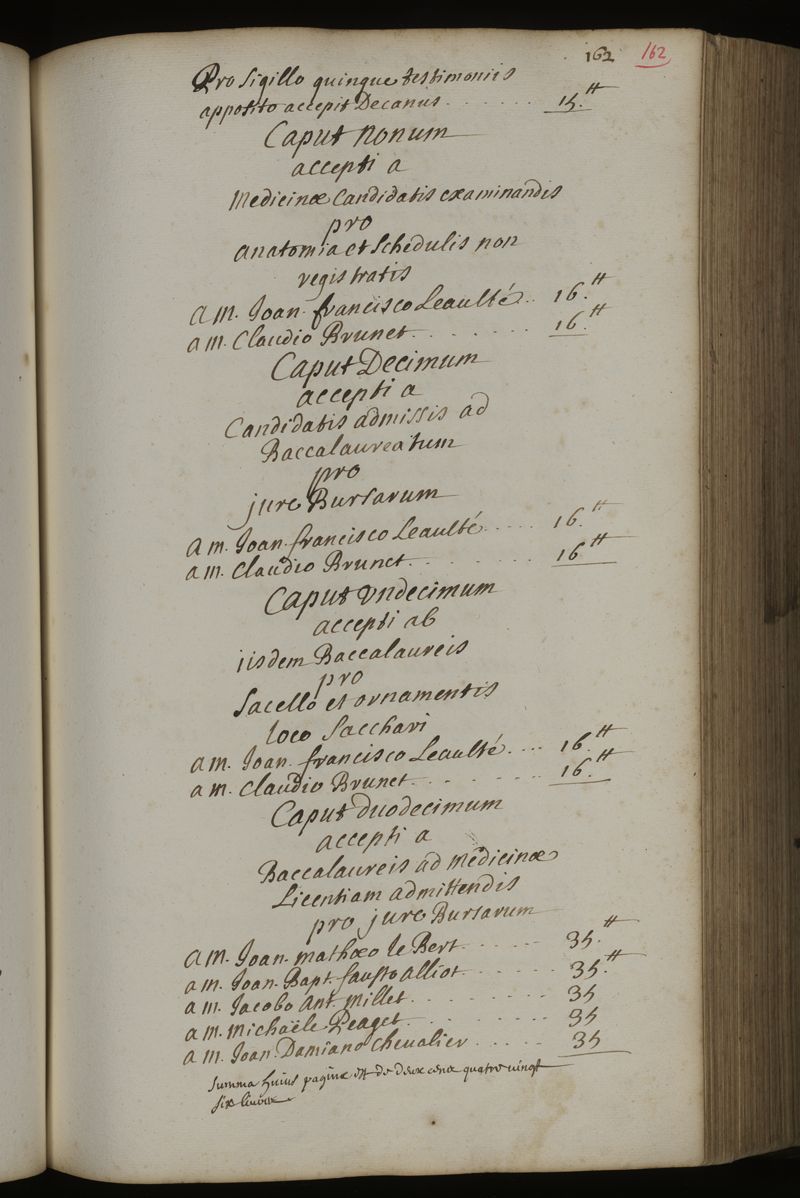 162 162
Pro sigillo quinque testimoniis
apposito accepit Decanus . . . . . . 15.tt
Caput nonum
accepti a
Medicinæ Candidatis examinandis
pro
anatomia et schedulis non
registratis
a M. Joan. francisco Leaulté . . 16.tt
a M. Claudio Brunet . . . . . . . 16.tt
Caput Decimum
accepti a
Candidatis admissis ad
Baccalaureatum
pro
jure Bursarum
a M. Joan. francisco Leaulté . . . . . 16.tt
a M. Claudio Brunet . . . . . . . . 16.tt
Caput vndecimum
accepti ab
iisdem Baccalaureis
pro
sacello et ornamentis
loco sacchari
a M. Joan. francisco Leaulté . . . . 16.tt
a M. Claudio Brunet . . . . . . . 16.tt
Caput duodecimum
accepti a
Baccalaureis ad Medicinæ
Licentiam admittendis
pro jure Bursarum
a M. Joan. mathæo le Bert . . . . . . 35.tt
a M. Joan. Bapt. fausto alliot . . . . . . 35.tt
a M. Jacobo Ant. Millet . . . . . . . . 35
a M. Michaële Peaget . . . . . . . . 35
a M. Joan. Damiano Chevalier . . . . . 35
summa huius paginæ est de deux cent quatre vingt
six livres